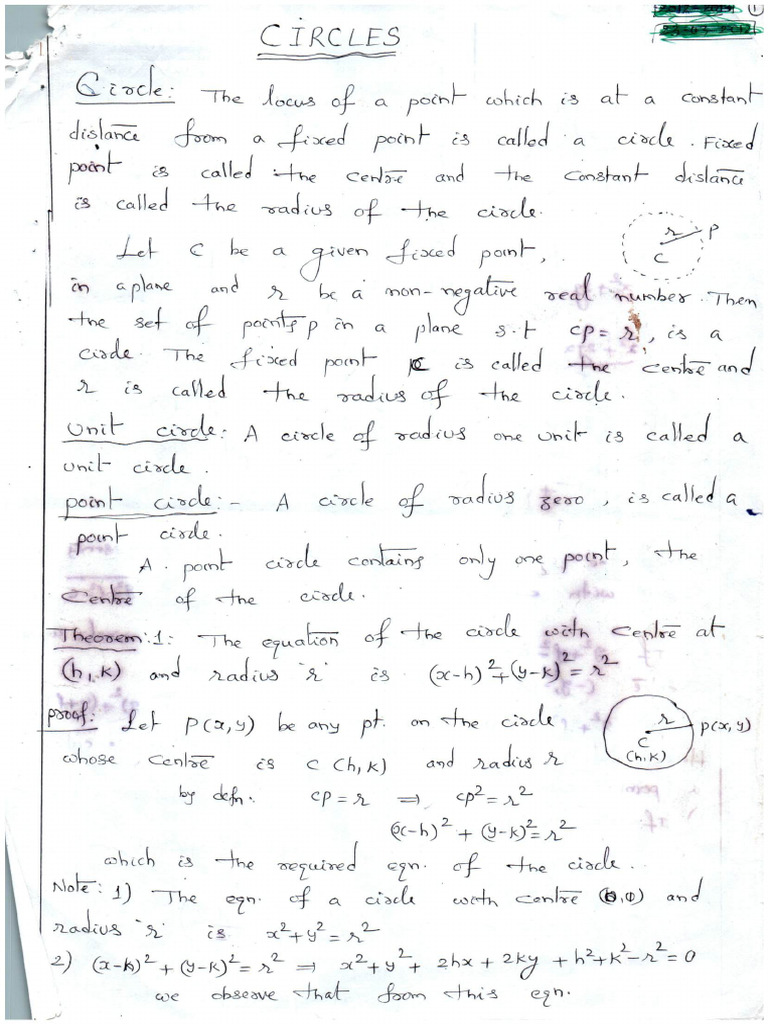 CIRCLES
1
Circle: The locus of a point which is at a constant
distance from a fixed point is called a circle. Fixed
point is called the centre and the constant distance
is called the radius of the circle.
r P
C
Let C be a given fixed point,
in a plane and r be a non-negative real number. Then
the set of points p in a plane s.t cp = r, is a
circle. The fixed point C is called the centre and
r is called the radius of the circle.
Unit circle: A circle of radius one unit is called a
unit circle.
point circle:- A circle of radius zero, is called a
point circle.
A point circle contains only one point, the
centre of the circle.
Theorem:1: The equation of the circle with centre at
(h,k) and radius 'r' is (x-h)²+(y-k)²=r²
proof: Let P(x,y) be any pt. on the circle
r P(x,y)
C
(h,k)
whose centre is C (h,k) and radius r
by defn. cp = r ⇒ cp² = r²
(x-h)² + (y-k)² = r²
which is the required eqn. of the circle.
Note: 1) The eqn. of a circle with centre (0,0) and
radius 'r' is x²+y² = r²
2) (x-k)² + (y-k)² = r² ⇒ x²+y²+ 2hx + 2ky + h²+k²-r² = 0
we observe that from this eqn.